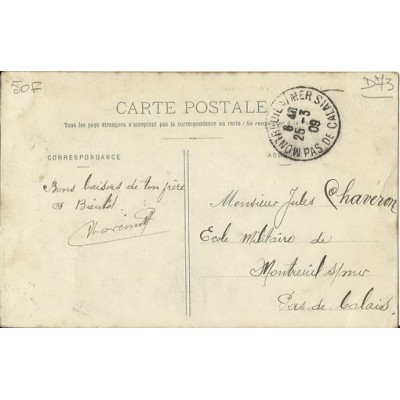 30F
D73
CARTE POSTALE
Tous les pays étrangers n'acceptent pas la correspondance au recto (Se rense
MONTREUIL S/ MER PAS DE CALAIS
8 40
25 - 3
09
CORRESPONDANCE
AD
Bons baisers de ton frère
et Bientôt
Monsieur Jules Chavéron
Ecole Militaire de
Montreuil s/mer
Pas de Calais